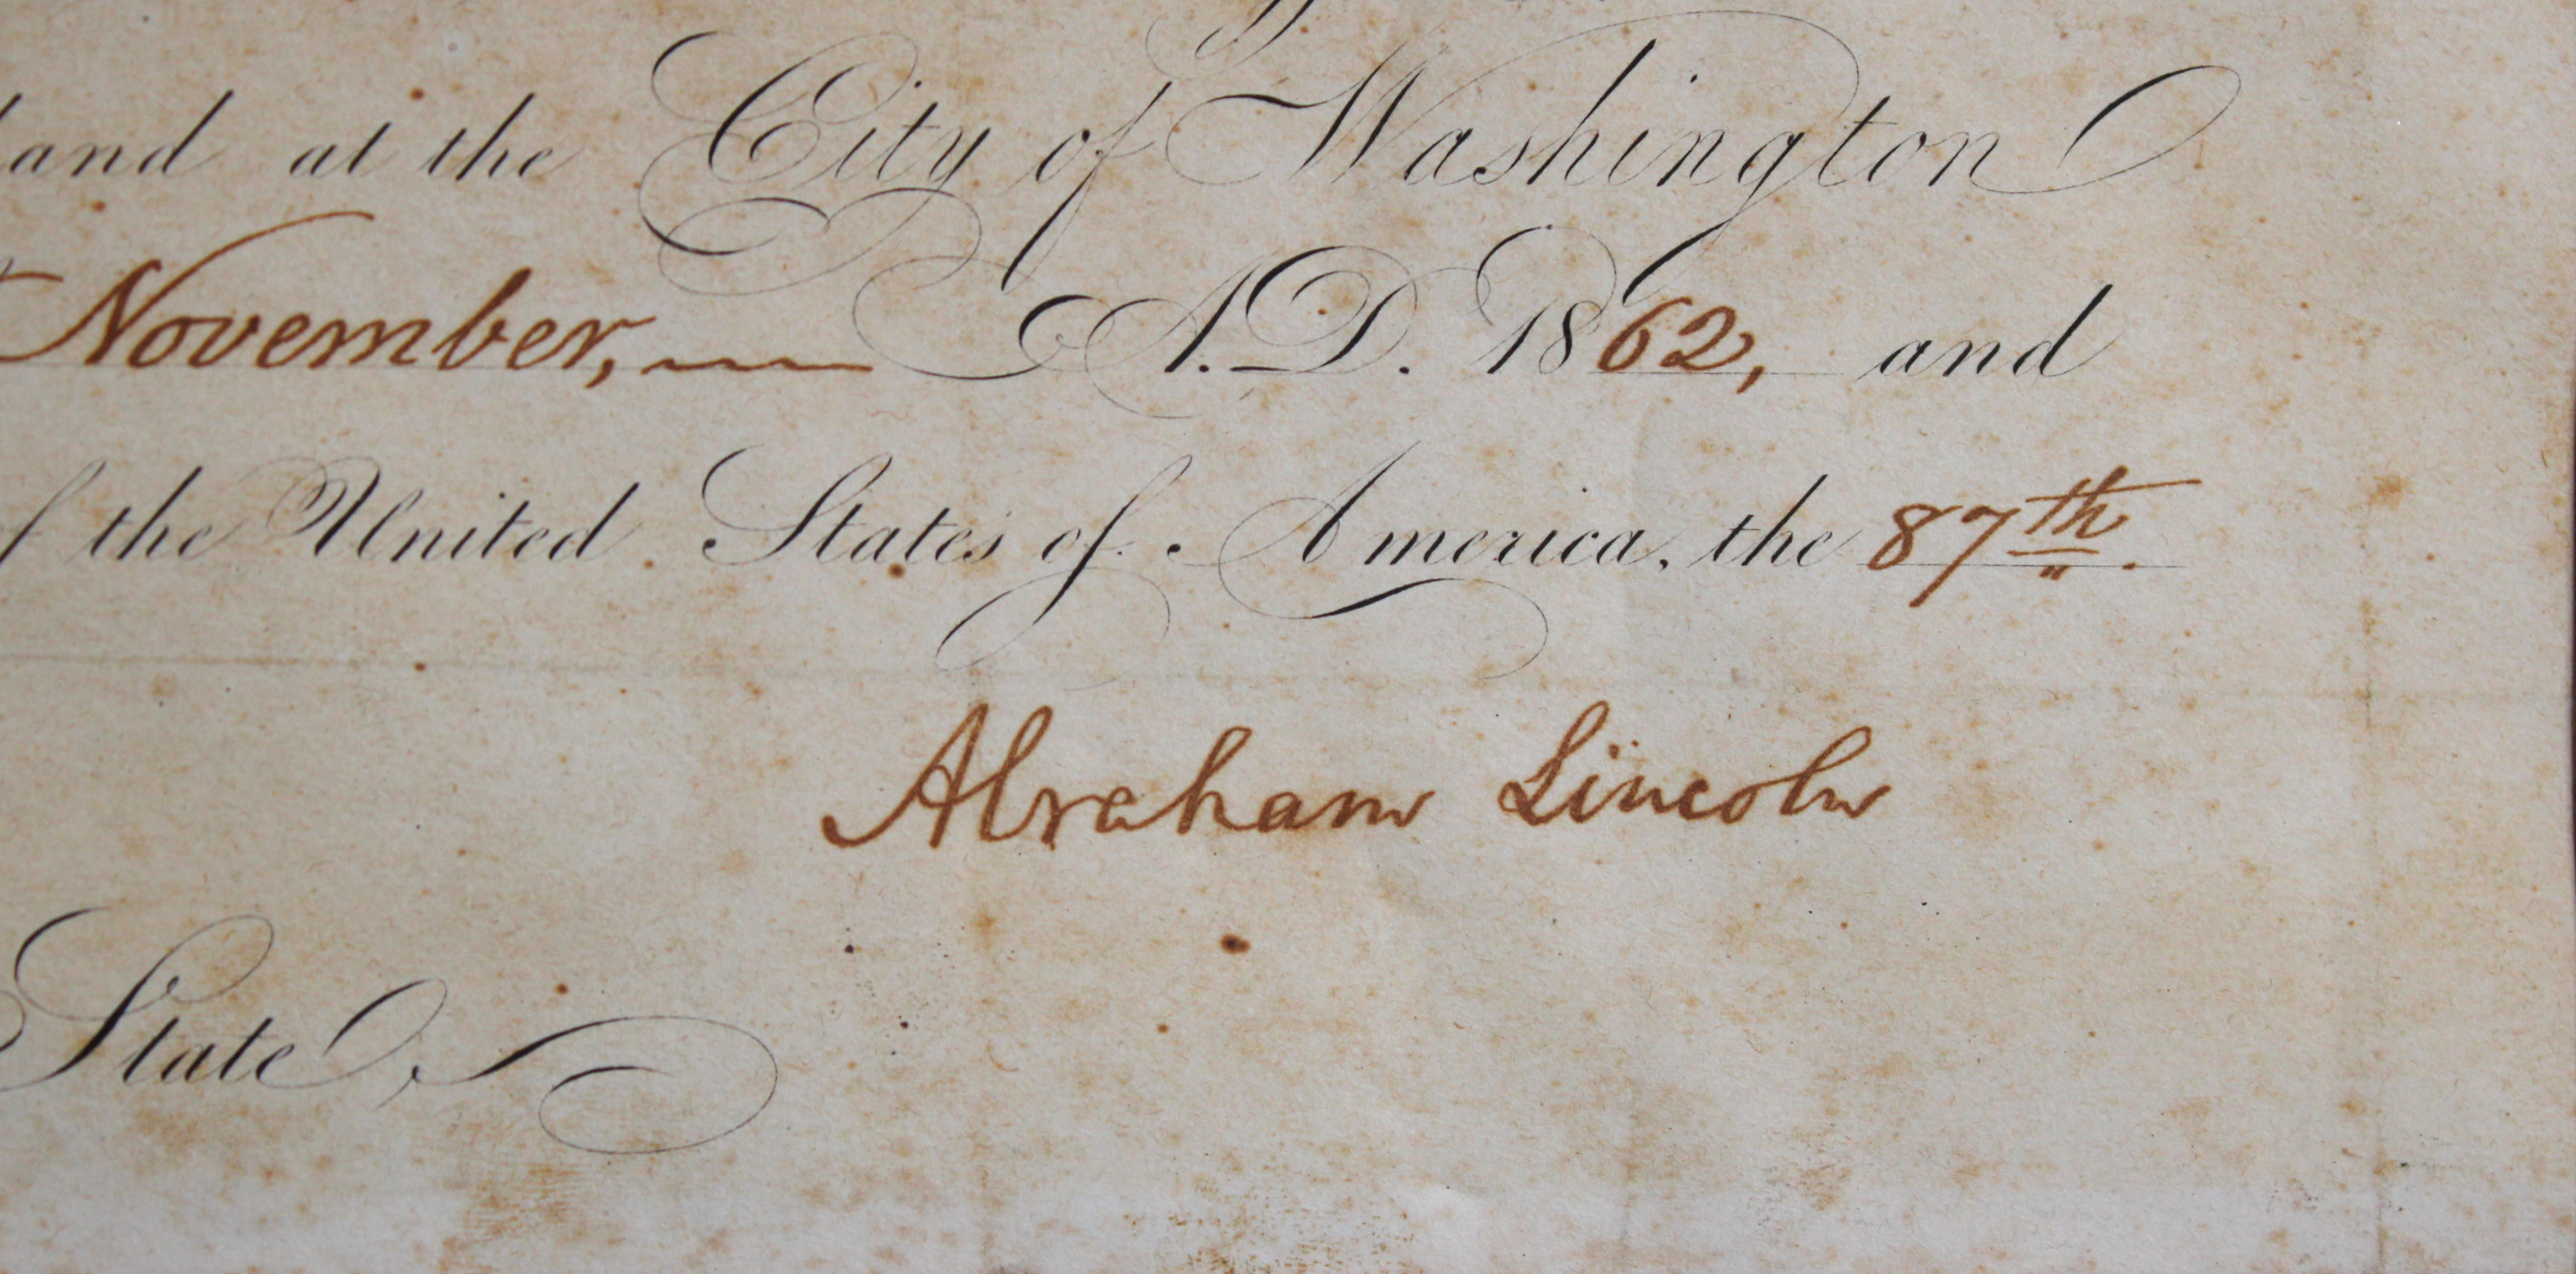 and at the City of Washington
November, A.D. 1862, and
the United States of America, the 87th.
Abraham Lincoln
State,